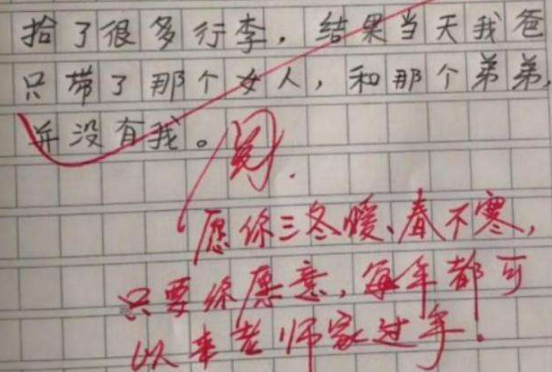 拾了很多行李，结果当天我爸
只带了那个女人，和那个弟弟，
并没有我。
阅.
愿你三冬暖、春不寒，
只要你愿意，每年都可
以来老师家过年！